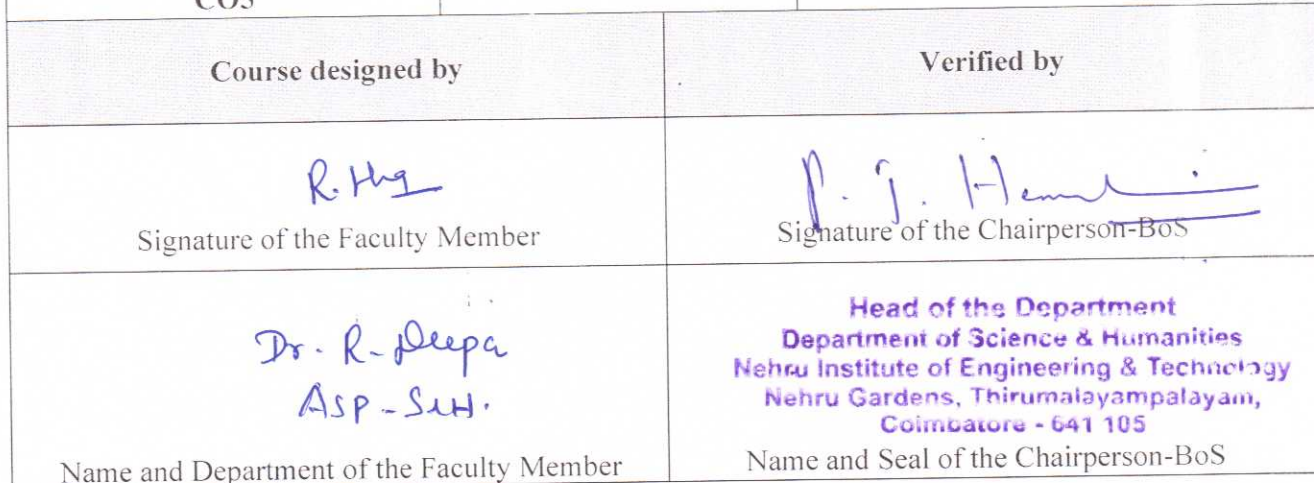 CO5
Course designed by
Verified by
R.
P. J.
Signature of the Faculty Member
Signature of the Chairperson-BoS
Dr. R. Deepa
ASP - S&H.
Name and Department of the Faculty Member
Head of the Department
Department of Science & Humanities
Nehru Institute of Engineering & Technology
Nehru Gardens, Thirumalayampalayam,
Coimbatore - 641 105
Name and Seal of the Chairperson-BoS